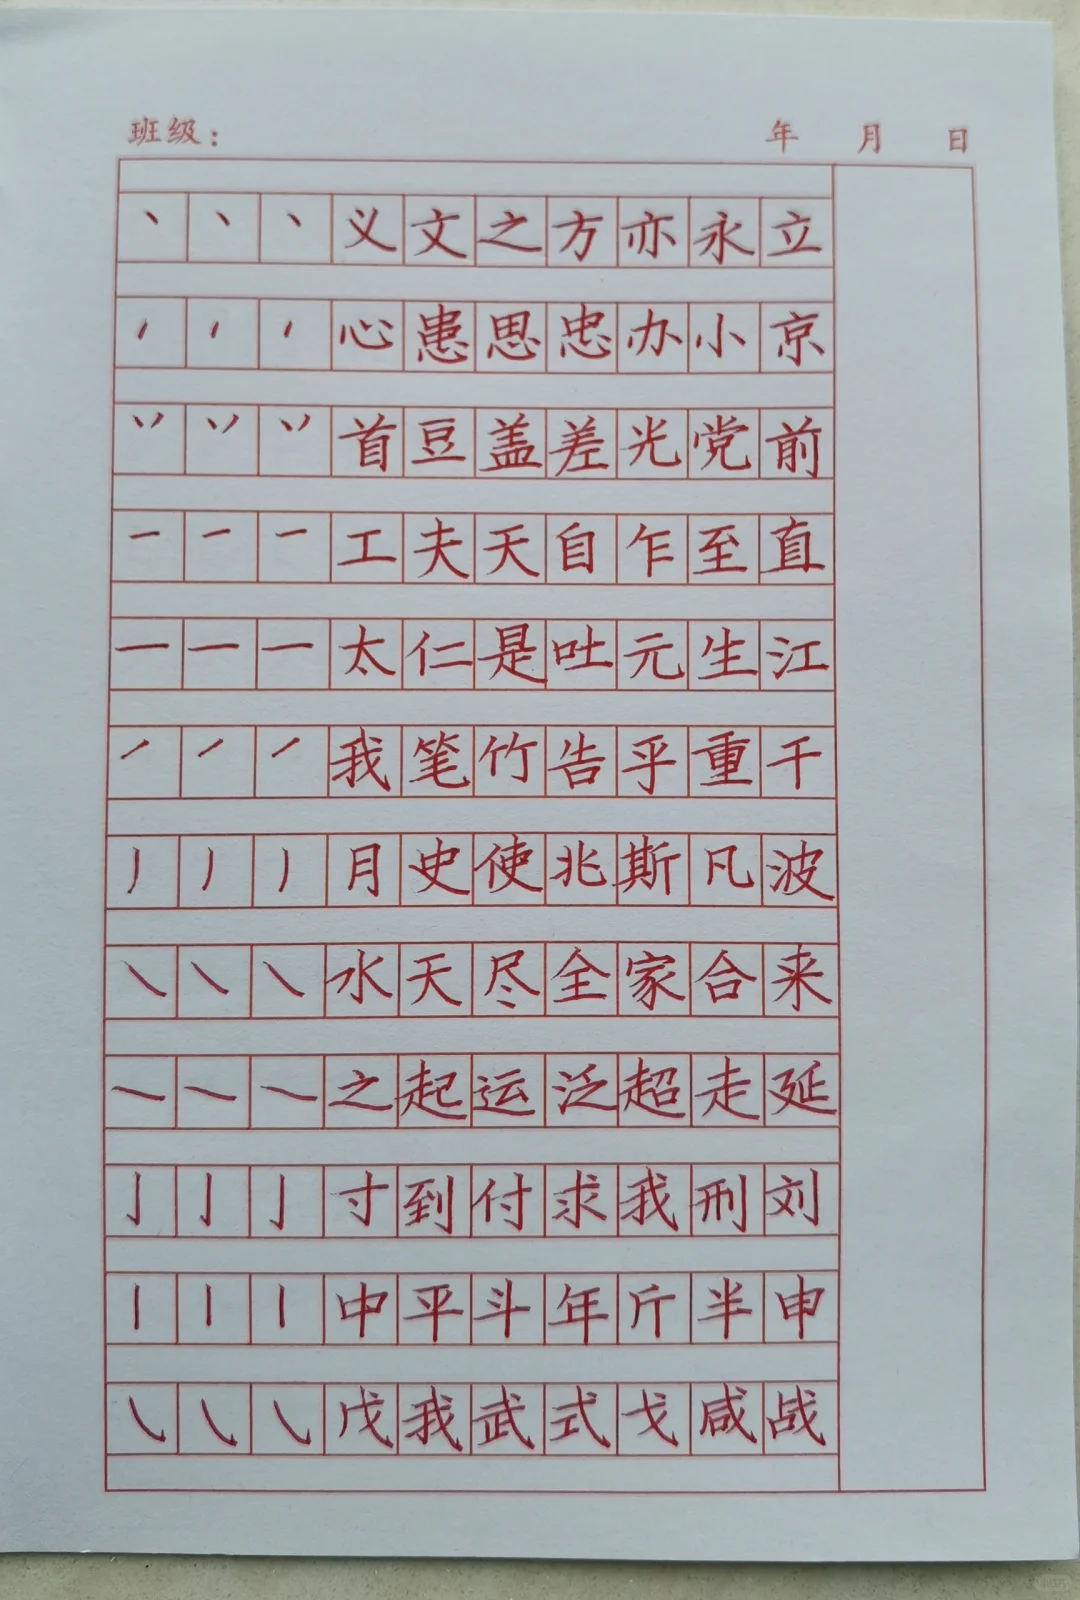 班级： 年 月 日
丶 丶 丶 义 文 之 方 亦 永 立
丿 丿 丿 心 患 思 忠 办 小 京
丷 丷 丷 首 豆 盖 差 光 党 前
一 一 一 工 夫 天 自 乍 至 直
一 一 一 太 仁 是 吐 元 生 江
㇒ ㇒ ㇒ 我 笔 竹 告 乎 重 千
丿 丿 丿 月 史 使 兆 斯 凡 波
㇏ ㇏ ㇏ 水 天 尽 全 家 合 来
㇏ ㇏ ㇏ 之 起 运 泛 超 走 延
亅 亅 亅 寸 到 付 求 我 刑 刘
丨 丨 丨 中 平 斗 年 斤 半 申
㇂ ㇂ ㇂ 戊 我 武 式 戈 咸 战